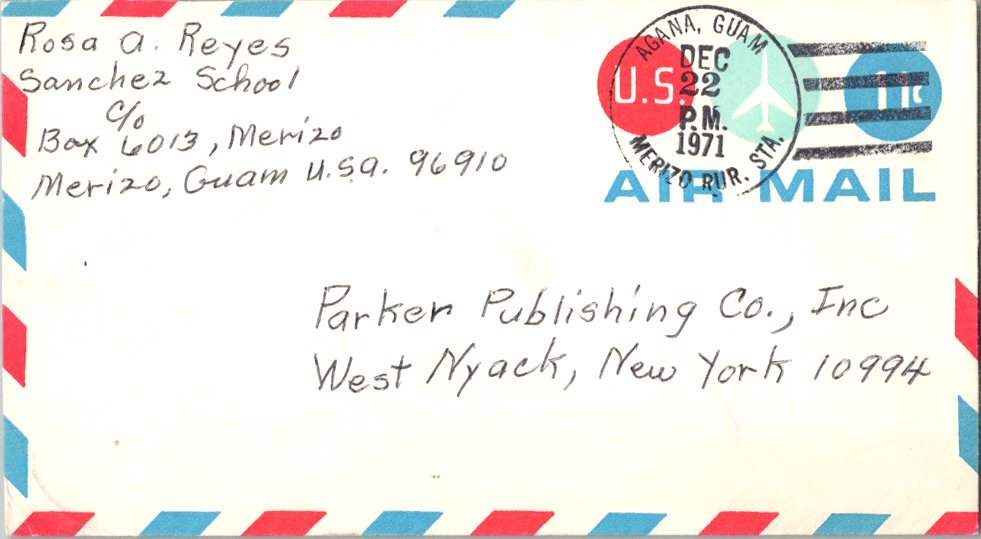 Rosa A. Reyes
Sanchez School
c/o
Box 6013, Merizo
Merizo, Guam U.S.A. 96910
AGANA, GUAM
DEC
22
P.M.
1971
MERIZO RUR. STA.
U.S.
AIR MAIL
Parker Publishing Co., Inc
West Nyack, New York 10994